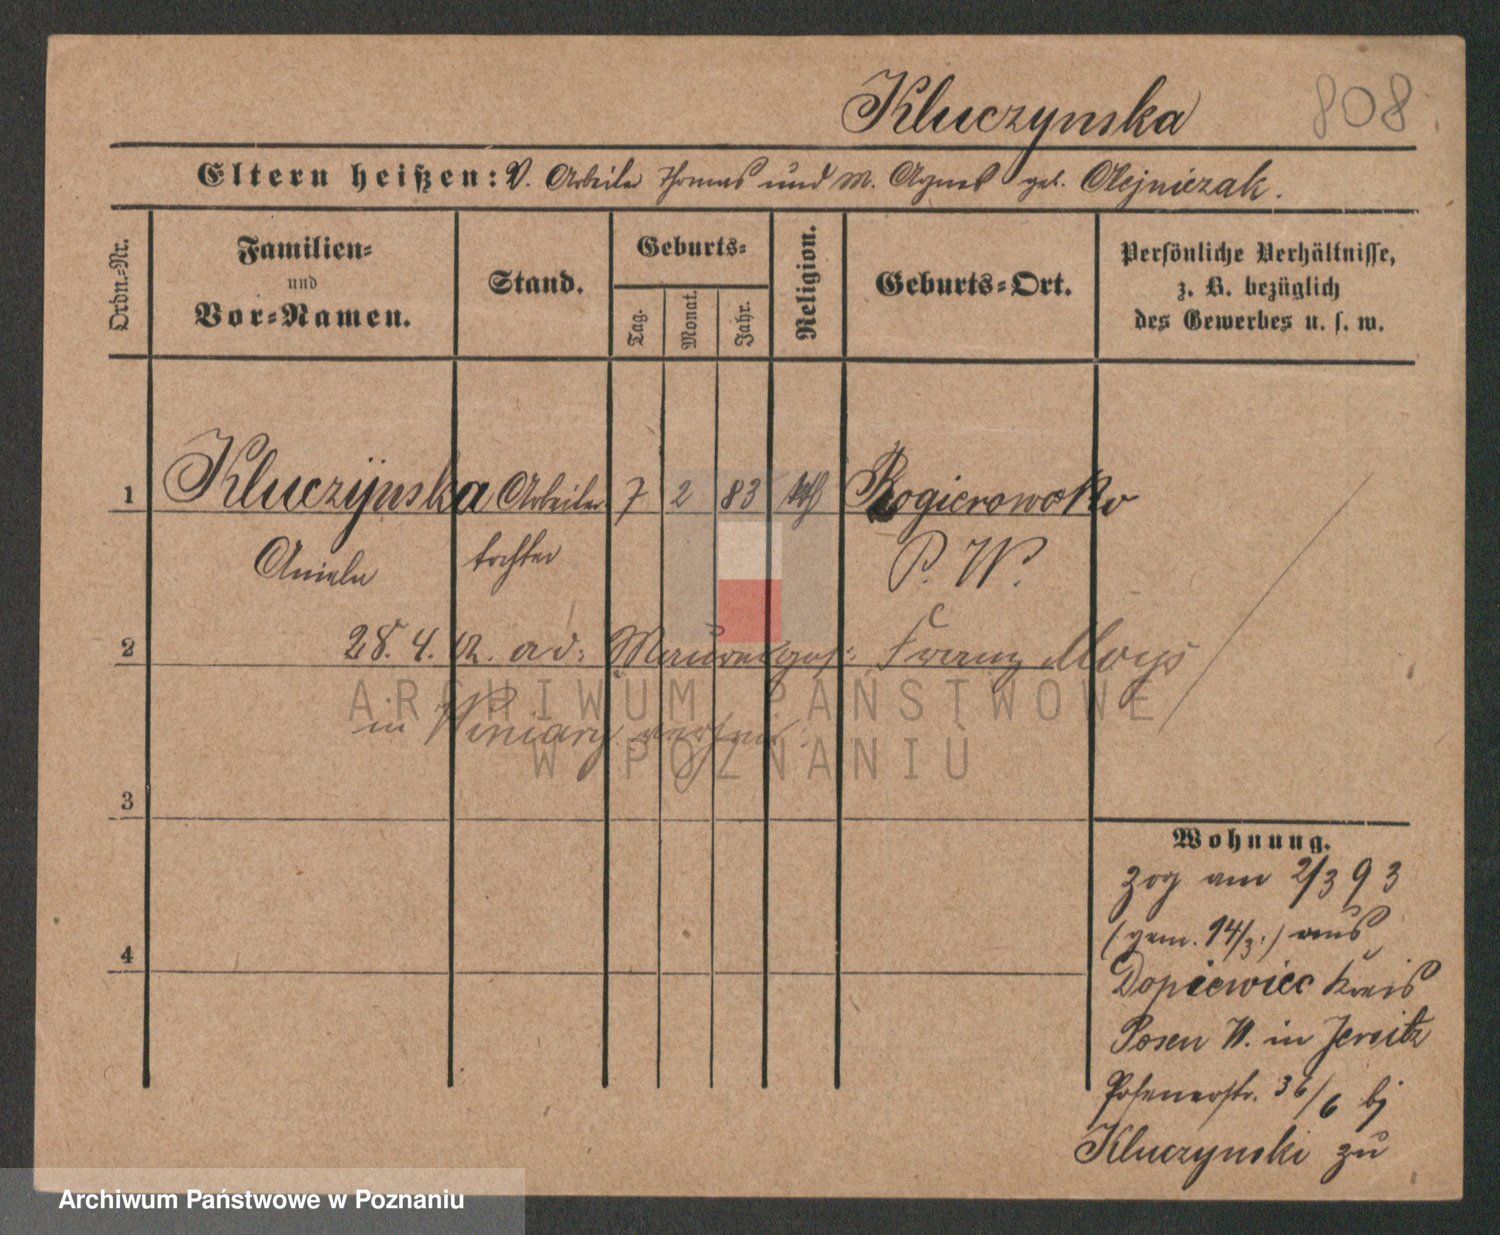 Kluczynska 808
Eltern heißen: V. Arbeiter Thomas und M. Agnes geb. Olejniczak.
Ordn.-Nr.
Familien-
und
Vor-Namen.
Stand.
Geburts-
Tag.
Monat.
Jahr.
Religion.
Geburts-Ort.
Persönliche Verhältnisse,
z. B. bezüglich
des Gewerbes u. s. w.
1 Kluczynska Arbeiter 7 2 83 kth Rogierowoko
Aniela tochter P. W.
2 28. 4. 12. Franz Moys
in Winiary
3
4
Wohnung.
zog am 2/3 93
(gem. 14/3.) aus
Dopiewiec Kreis
Posen W. in Jersitz
Posenerstr. 36/6 bj
Kluczynski zu
ARCHIWUM PAŃSTWOWE
W POZNANIU
Archiwum Państwowe w Poznaniu